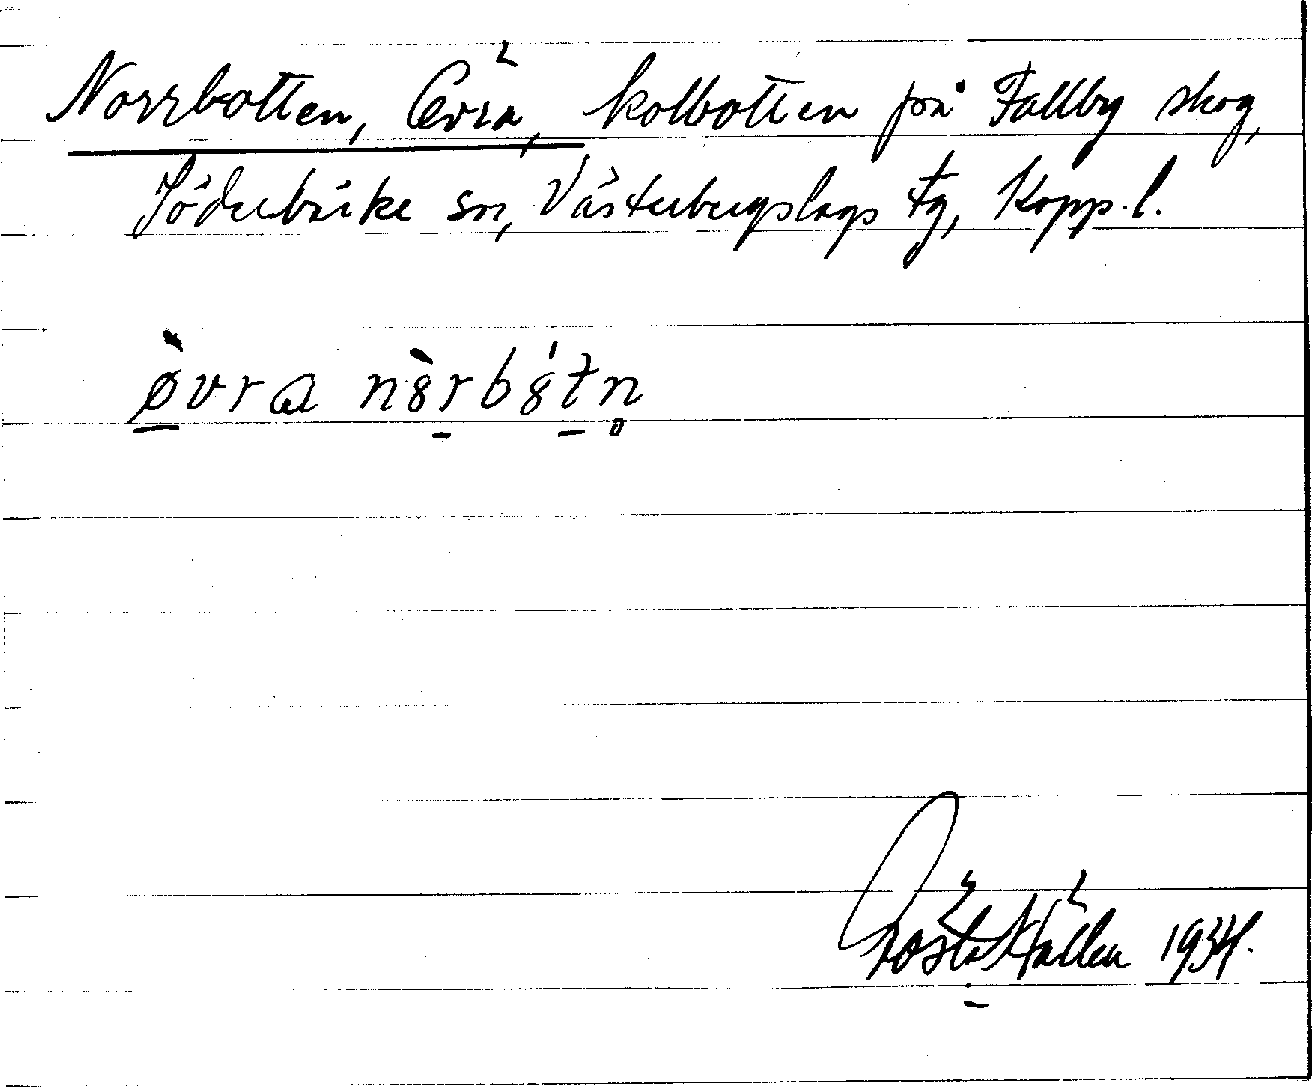 Norrbotten, Övra, kolbotten på Fallby skog,
Söderbärke sn, Västerbergslags tg, Kopp. l.
ø̀vra nȍrbo̍tn̥
Gösta Hallén 1934.